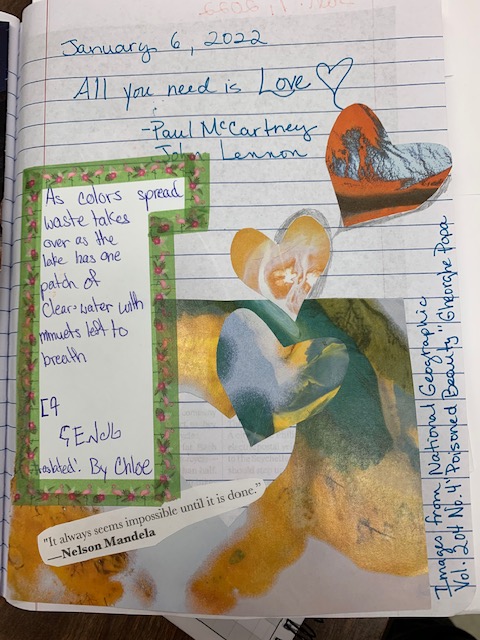 January 6, 2022
All you need is Love
-Paul McCartney
John Lennon
As colors spread
waste takes
over as the
lake has one
patch of
clear water with
mnuets left to
breath
By Chloe
"It always seems impossible until it is done."
—Nelson Mandela
Images from National Geographic
Vol. 204 No. 4 "Poisoned Beauty" Gheorghe Popa